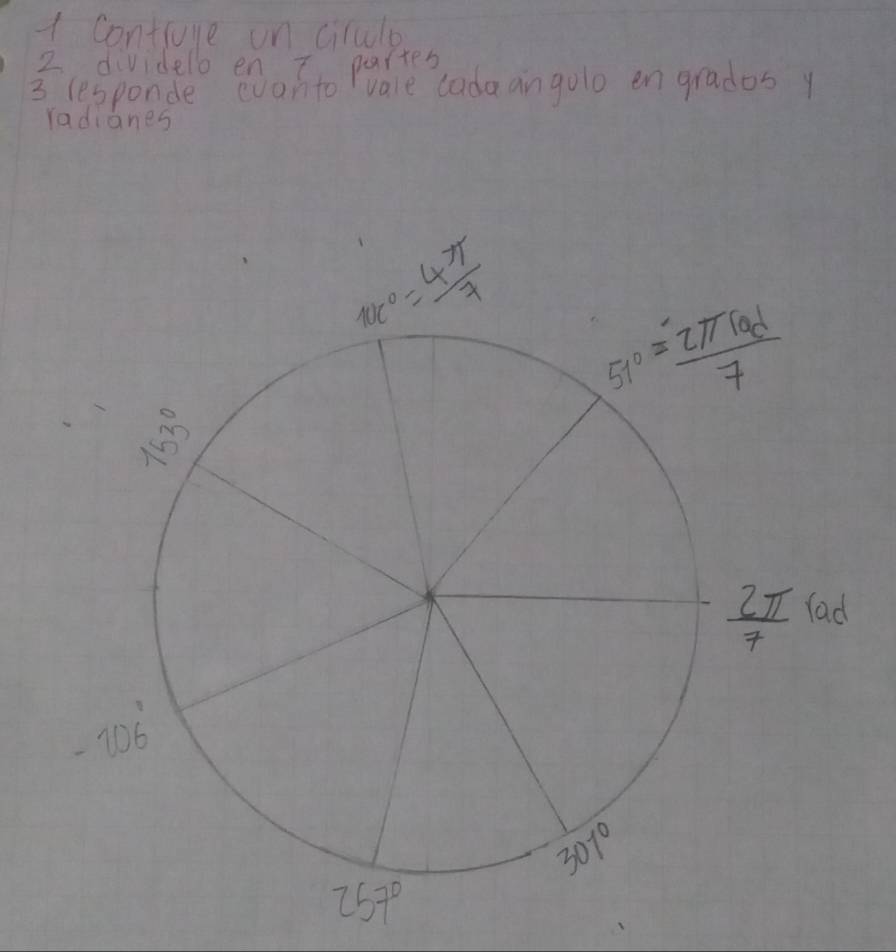 1 Contruye un circulo
2 dividelo en 7 partes
3 responde cuanto vale cada angulo en grados y
radianes
= 4π/7
51° = 2π rad/7
153°
2π/7 rad
- 206°
301°
257°